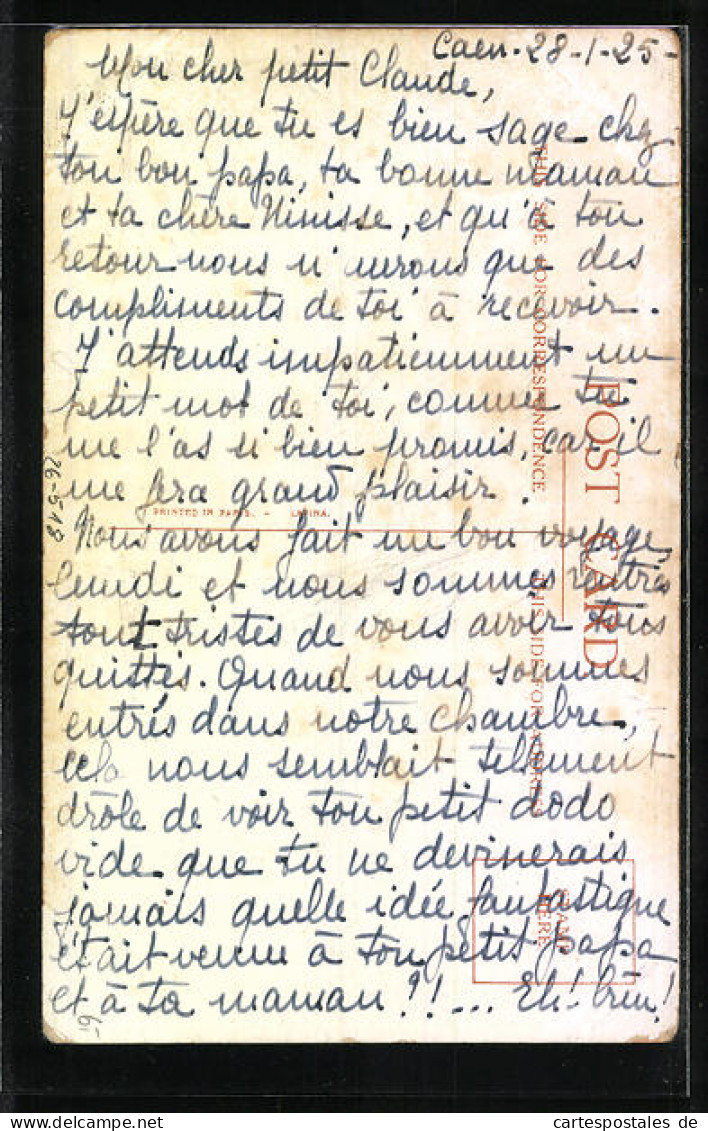 Caen - 28-1-25 -
Mon cher petit Claude,
J'espère que tu es bien sage chez
ton bon papa, ta bonne maman
et ta chère Ninisse, et qu'à ton
retour nous n'aurons que des
compliments de toi à recevoir.
J'attends impatiemment un
petit mot de toi, comme tu
me l'as si bien promis, car il
me fera grand plaisir.
Nous avons fait un bon voyage
lundi et nous sommes rentrés
tout tristes de vous avoir tous
quittés. Quand nous sommes
entrés dans notre chambre,
cela nous semblait tellement
drôle de voir ton petit dodo
vide que tu ne devinerais
jamais quelle idée fantastique
était venue à ton petit papa
et à ta maman?!!... Eh! bien!
POST CARD
THIS SIDE FOR CORRESPONDENCE
THIS SIDE FOR ADDRESS
STAMP
HERE
PRINTED IN PARIS. - LAPINA.
65
cartespostales de